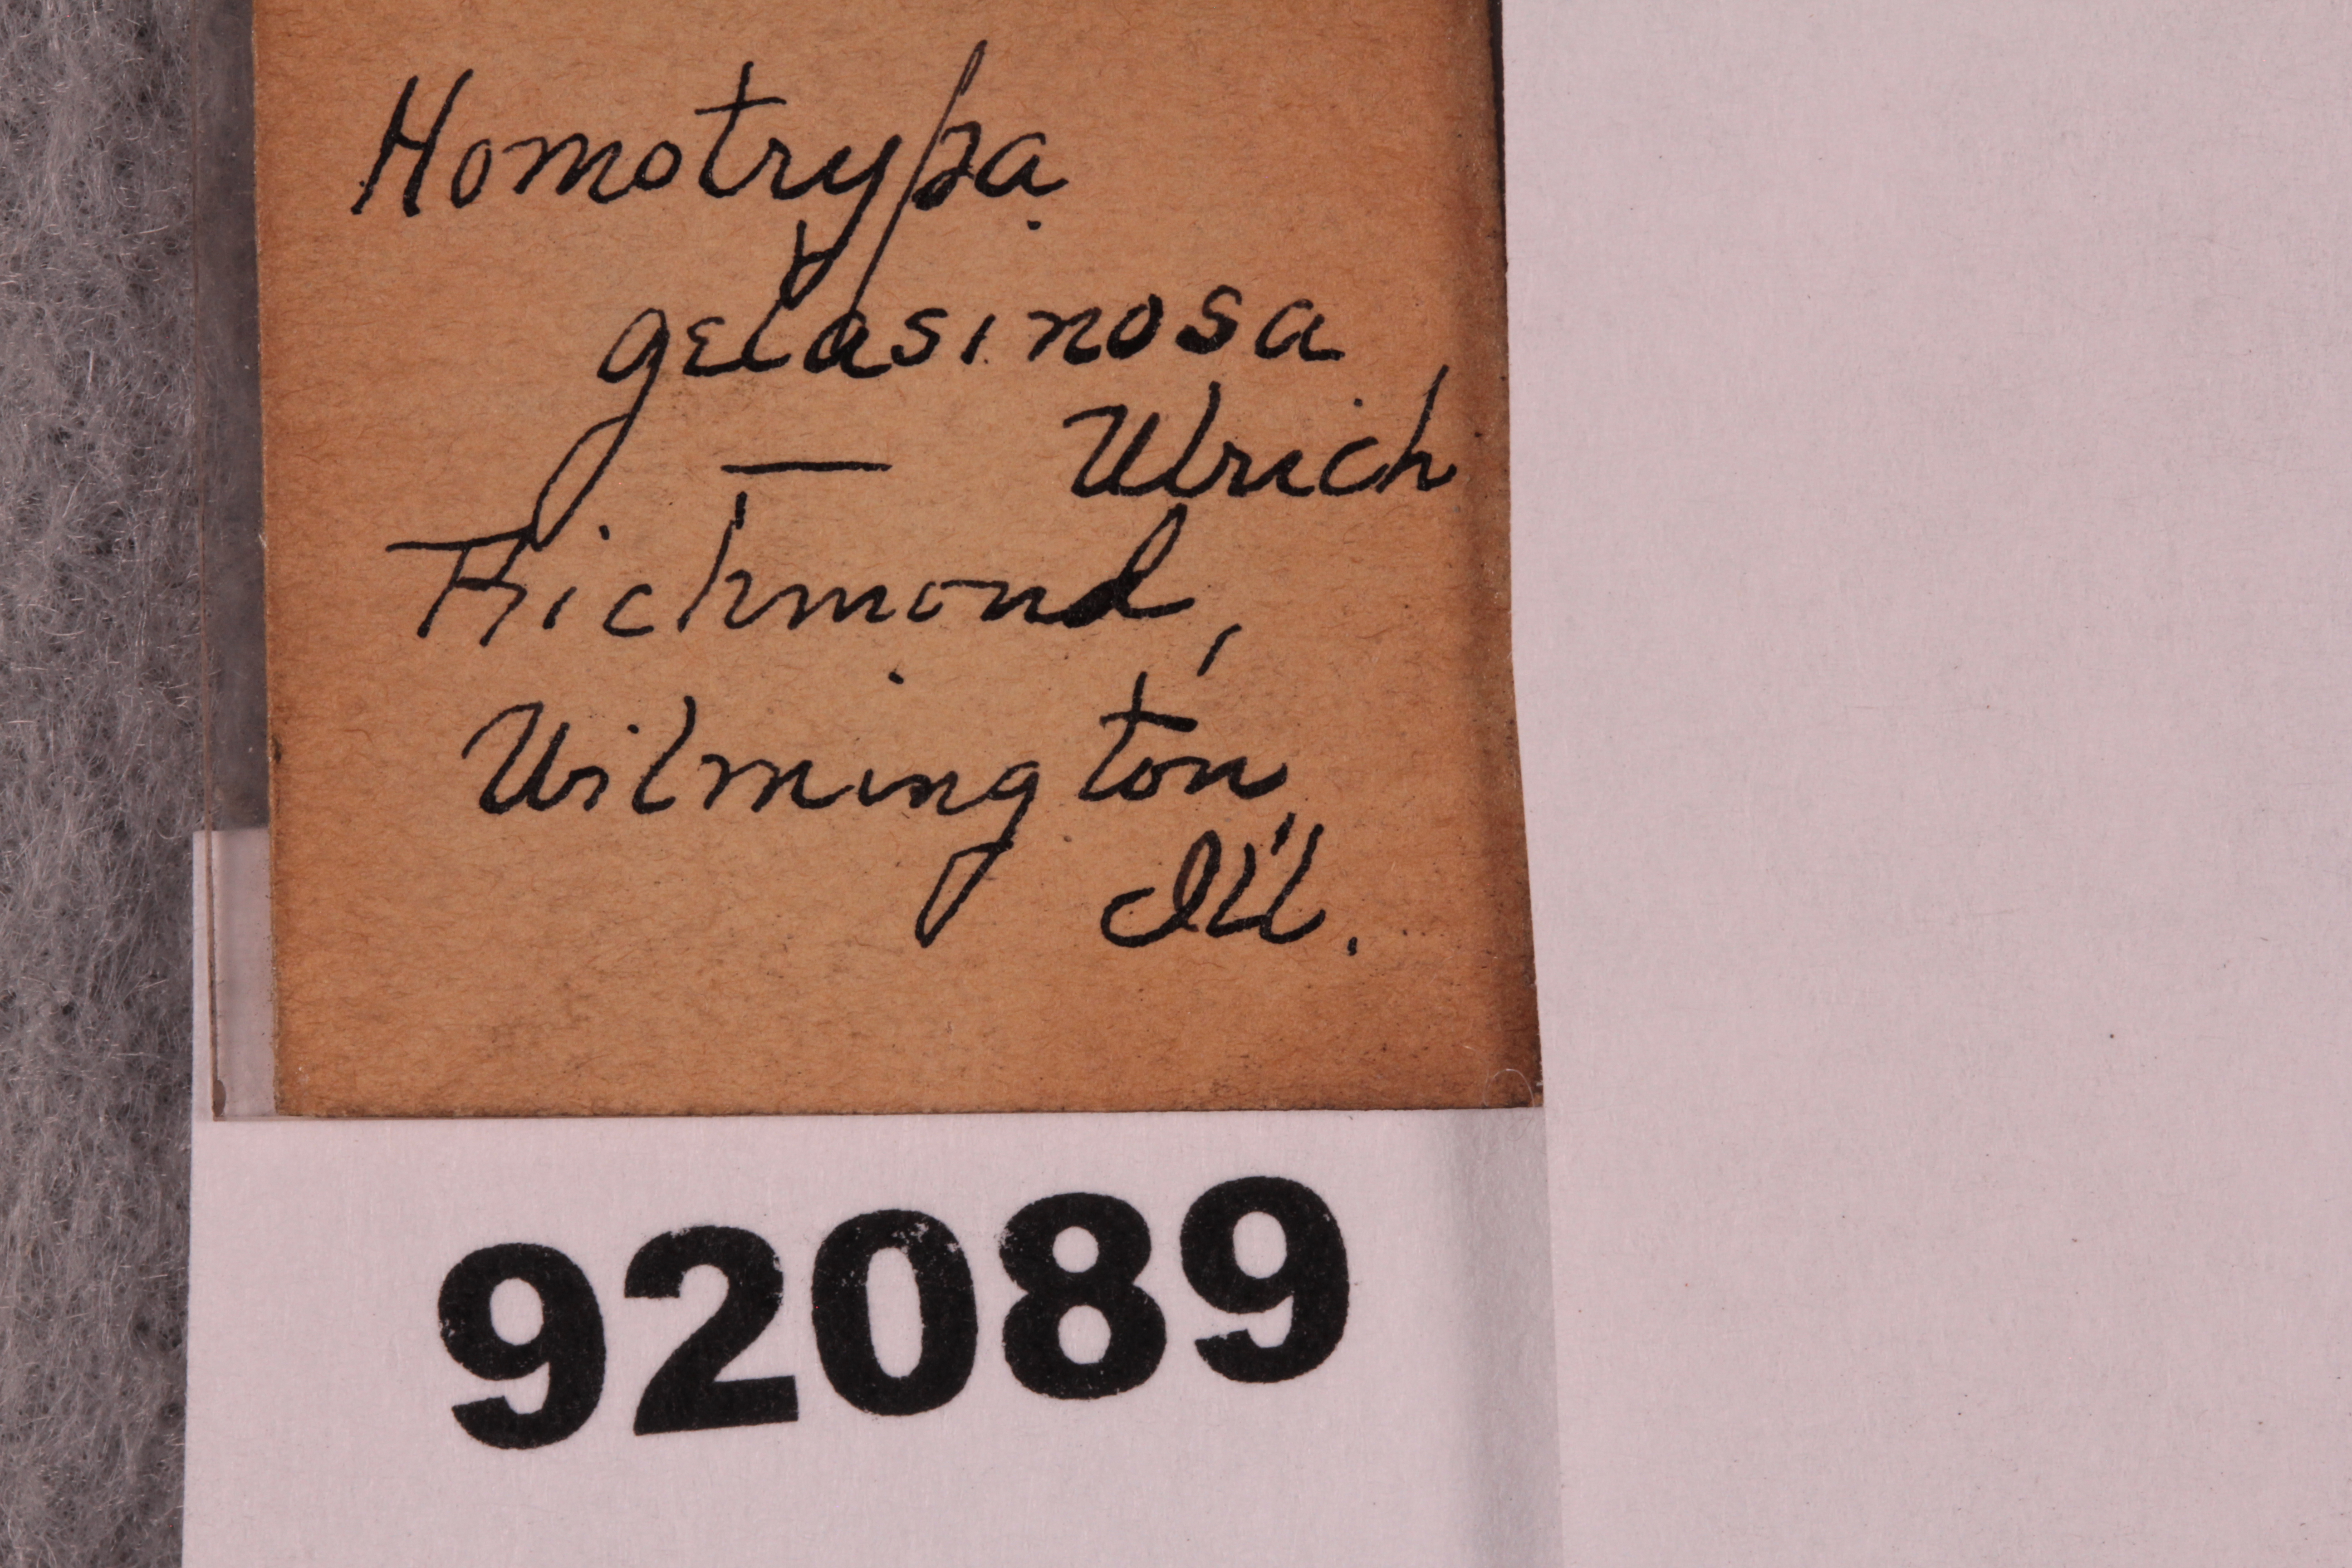 Homotrypa
gelasinosa
— Ulrich
Richmond,
Wilmington,
Ill.
92089